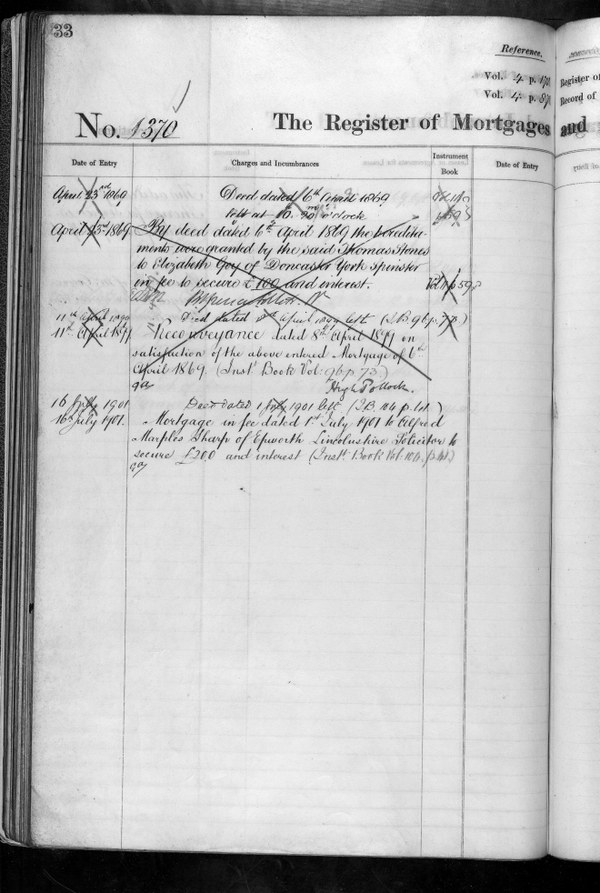 33
Reference.
Vol. 4 p.
Vol. 4 p. 87
No. 1370
The Register of Mortgages and
Register of
Record of
Date of Entry
Charges and Incumbrances
Instrument Book
Date of Entry
April 23rd 1869
Deed dated 6th April 1869
left at 10.20 o'clock
April 23rd 1869
By deed dated 6th April 1869 the heredita-
ments were granted by the said Thomas Stones
to Elizabeth Goy of Doncaster York Spinster
in fee to secure £100 and interest.
11th April 1899
Deed dated 8th April 1899 left (I.B. 96 p. 73)
11th April 1899
Reconveyance dated 8th April 1899 in
satisfaction of the above entered Mortgage of 6th
April 1869 (Inst. Book Vol. 96 p. 73)
Hugh Pollock.
16 July 1901
Deed dated 1 July 1901 left (I.B. 106 p.
16th July 1901.
Mortgage in fee dated 1st July 1901 to Alfred
Marples Sharp of Epworth Lincolnshire Solicitor to
secure £200 and interest (Inst. Book Vol. 106. p.